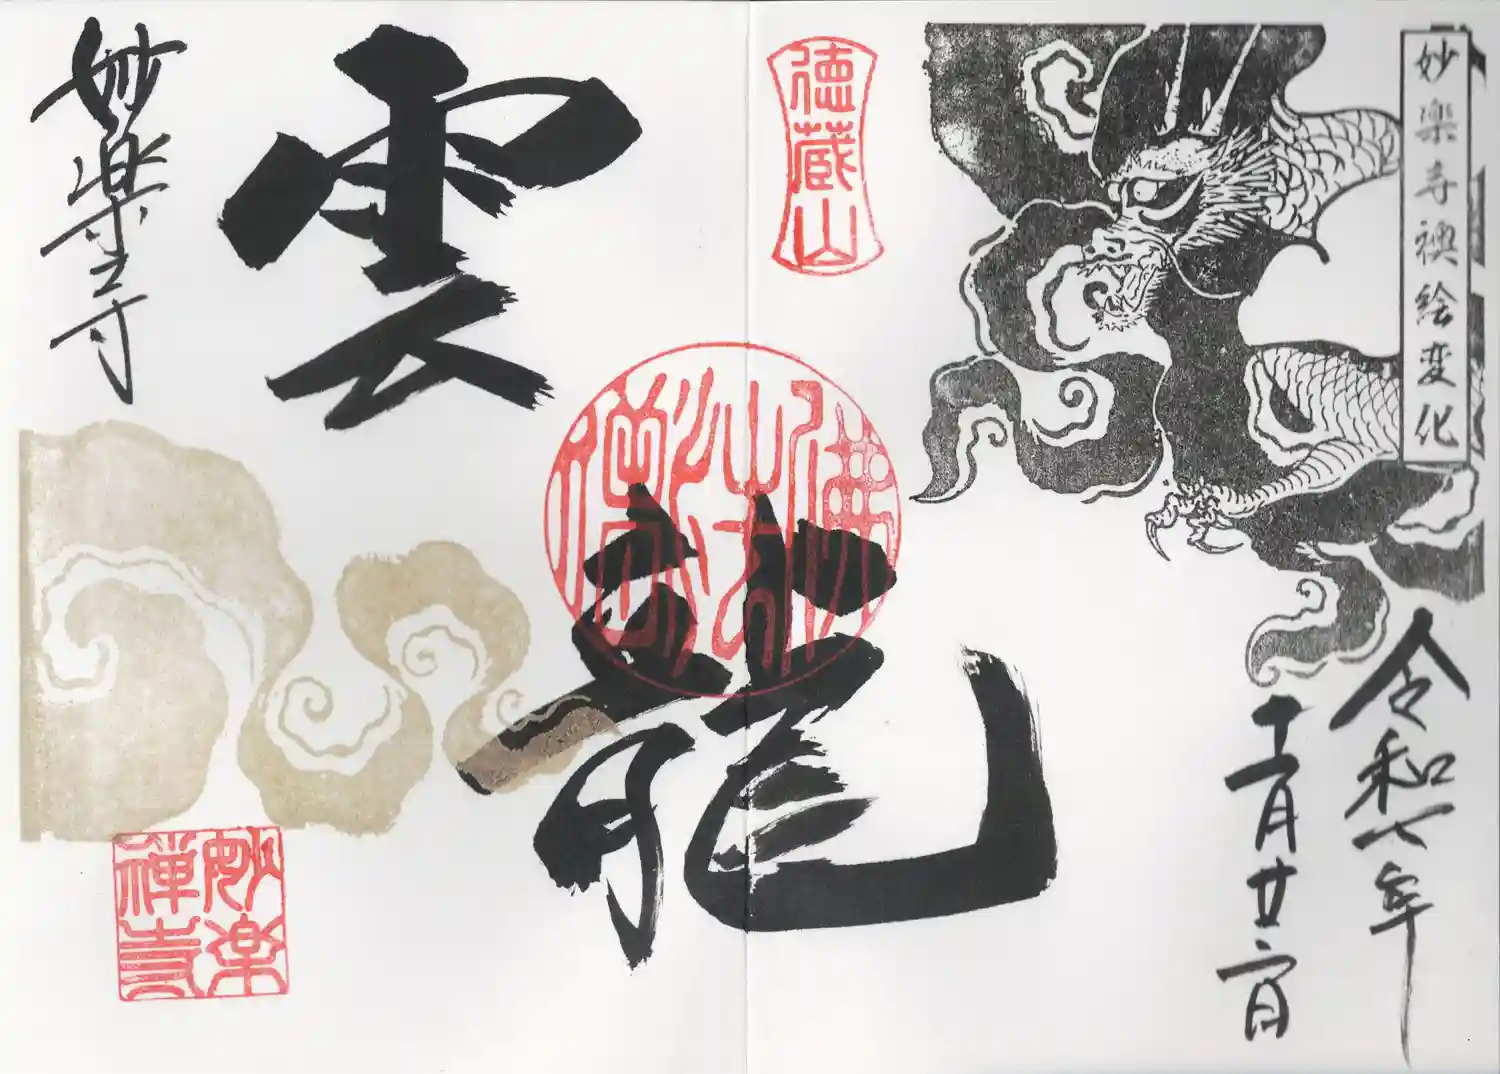 妙楽寺襖絵変化
令和七年
十二月廿二日
徳蔵山
佛法僧寳
雲
龍
妙楽寺
妙楽
禅寺